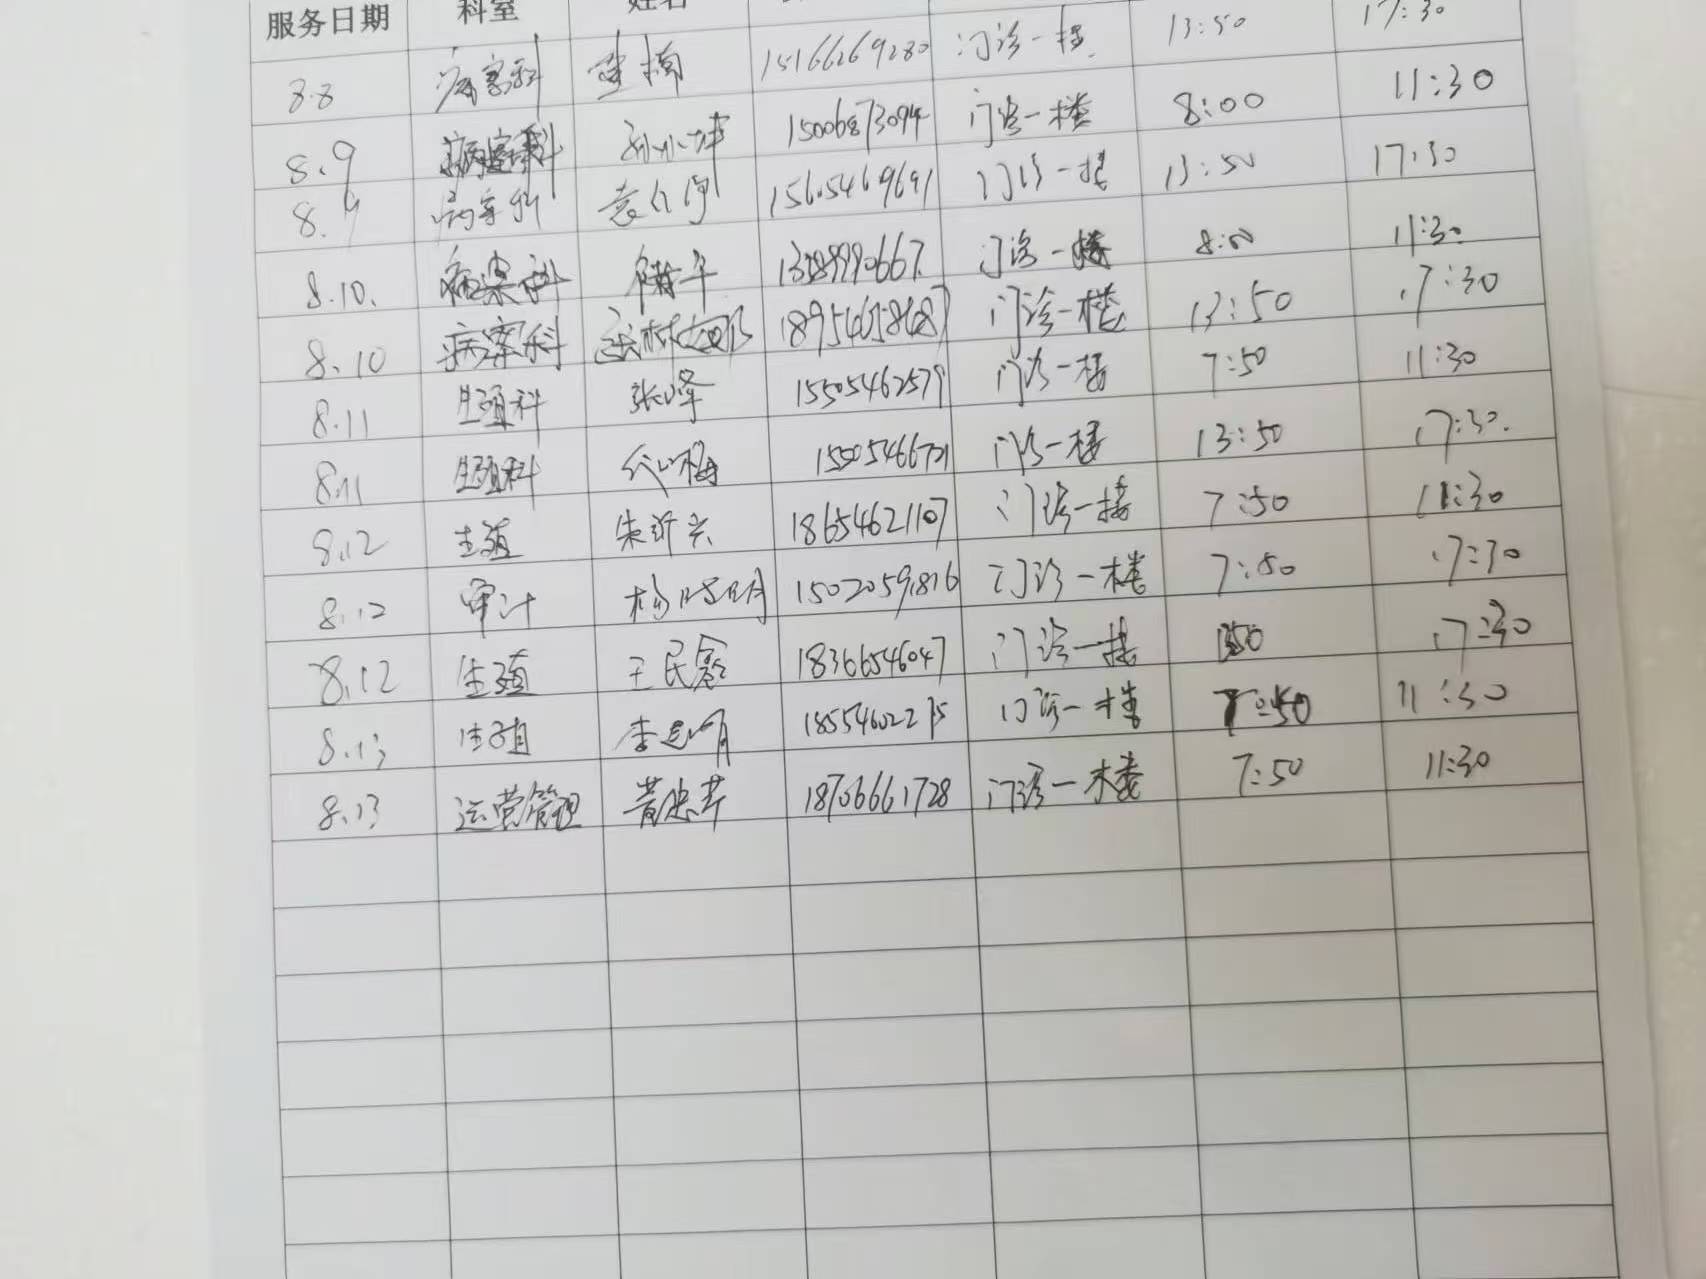 服务日期 科室 姓名
8.8 病案科 楠 15166269280 门诊一楼 13:50 17:30
8.9 病案科 孙小坤 15006873094 门诊一楼 8:00 11:30
8.9 病案科 15605469691 门诊一楼 13:50 17:30
8.10. 病案科 门诊一楼 8:00 11:30
8.10 病案科 门诊一楼 13:50 17:30
8.11 生殖科 张峰 15505462579 门诊一楼 7:50 11:30
8.11 生殖科 代小梅 门诊一楼 13:50 17:30.
8.12 生殖 朱沂兴 18654621107 门诊一楼 7:50 11:30
8.12 审计 杨晓明 15020591816 门诊一楼 7:50 17:30
8.12 生殖 王民鑫 18366546047 门诊一楼 17:30
8.13 生殖 李 18554602275 门诊一楼 7:50 11:30
8.13 运营管理 黄忠芹 18706661728 门诊一楼 7:50 11:30